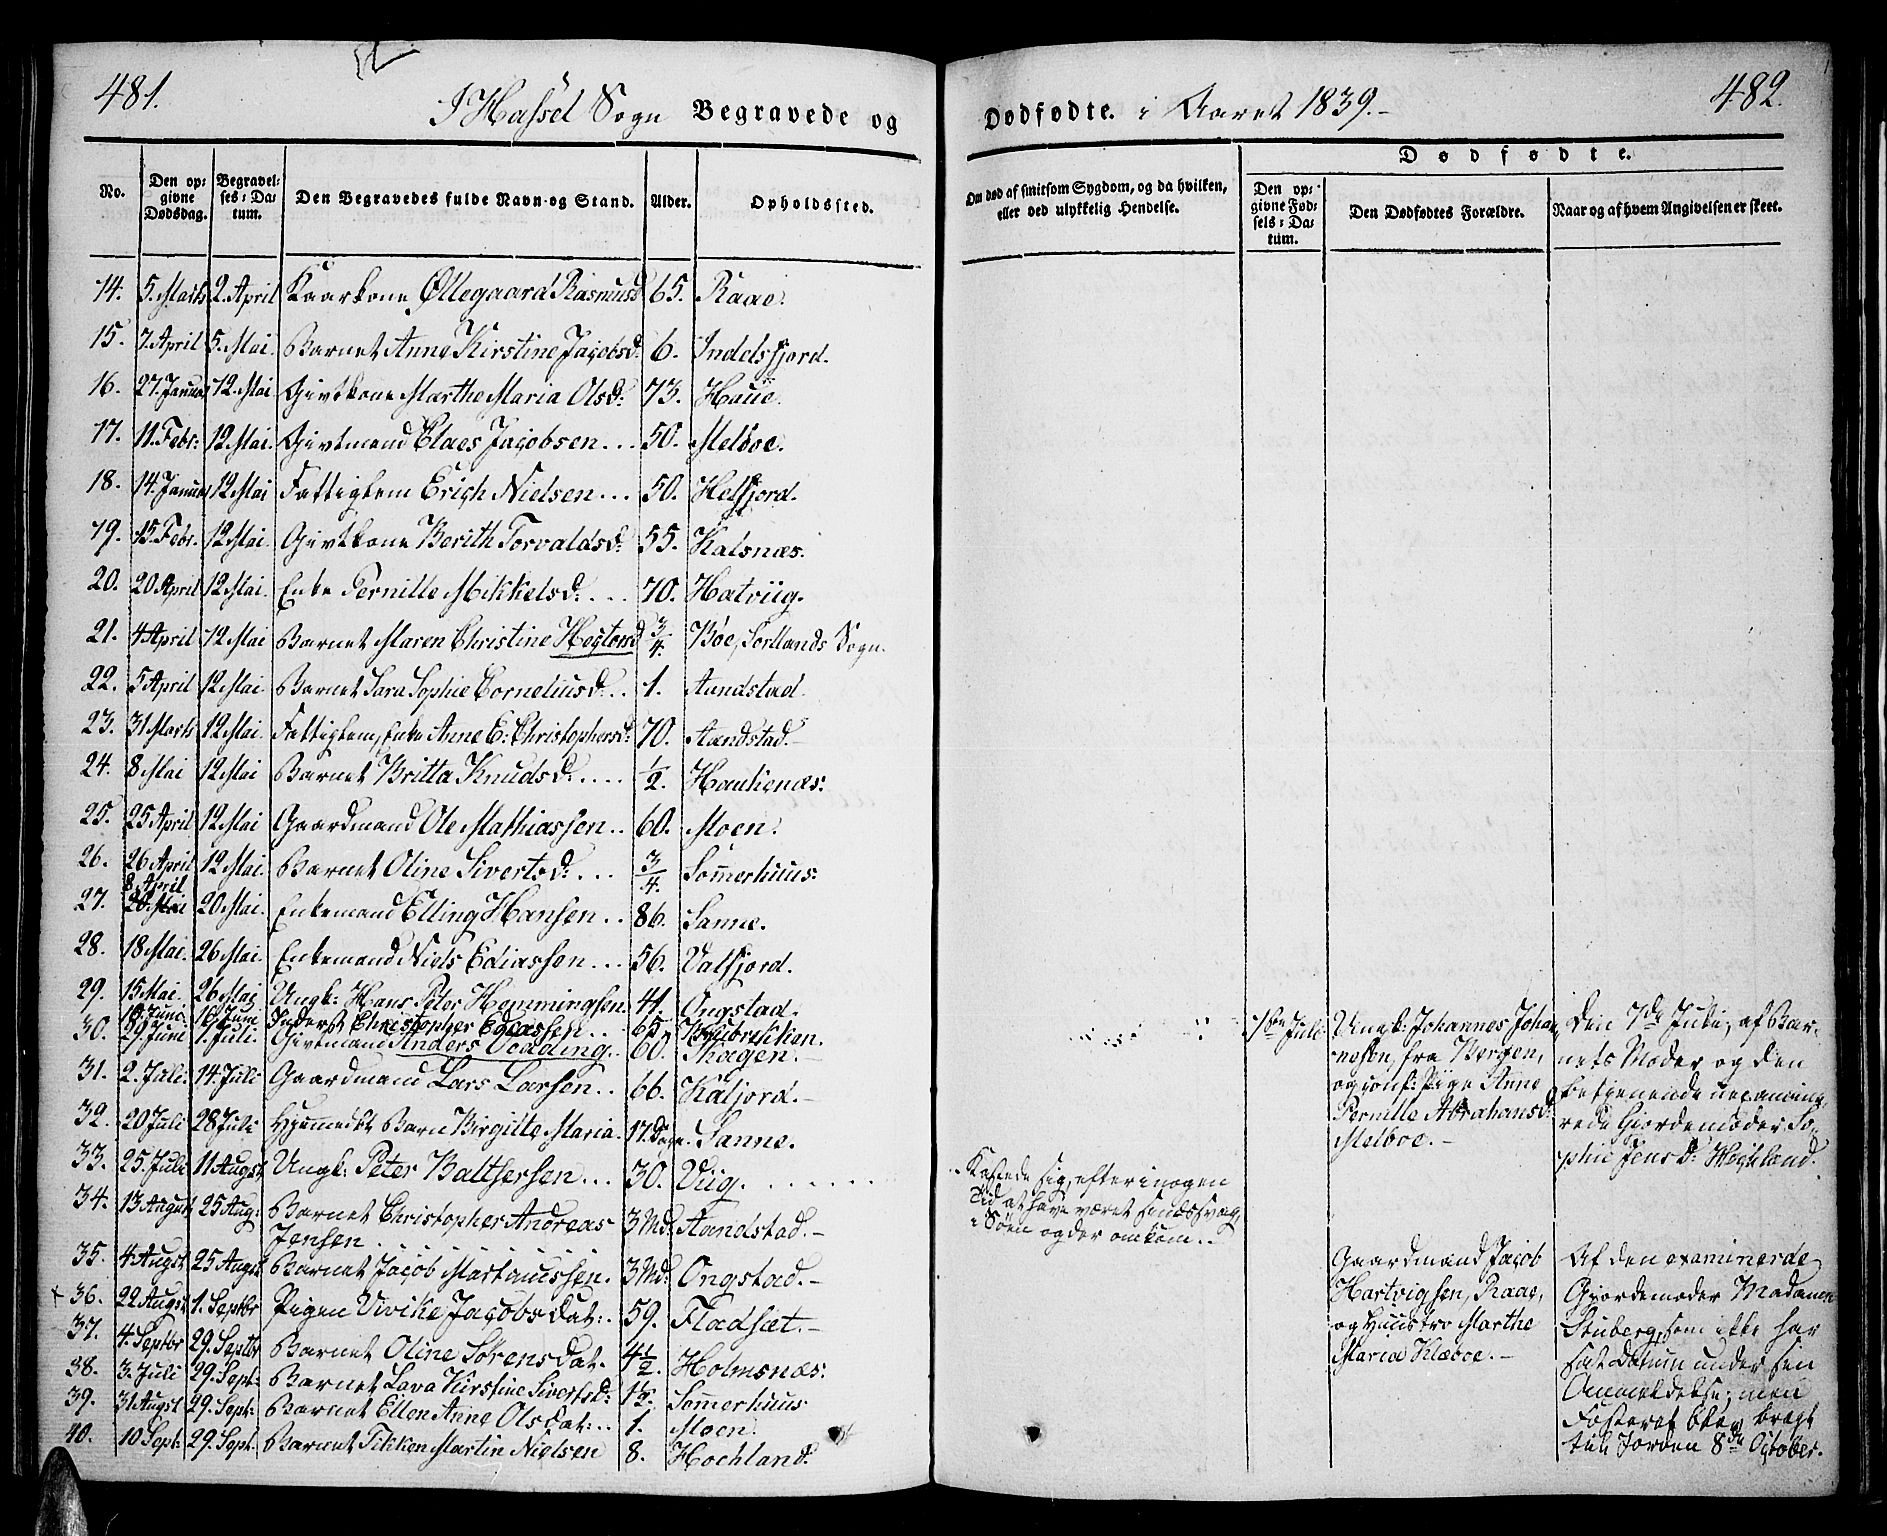 481.
I Hassel Sogn Begravede og
Dødfødte. i Aaret 1839.-
482.
No.
Den op-
givne
Dødsdag.
Begravel-
ses-Da-
tum.
Den Begravedes fulde Navn og Stand.
Alder.
Opholdssted.
Om død af smitsom Sygdom, og da hvilken,
eller ved ulykkelig Hendelse.
Dødfødte.
Den op-
givne Fød-
sels-Da-
tum.
Den Dødfødtes Forældre.
Naar og af hvem Angivelsen er skeet.
14. 5. Marts 2. April Kaarkone Øllegaard Rasmusd 65. Raae.
15. 7. April 5. Mai. Barnet Anne Kirstine Jacobsd: 6. Indelsfjord.
16. 27. Januar 12. Mai Givtkone Marthe Maria Olsd: 73. Haue.
17. 11. Febr: 12 Mai. Givtmand Claes Jacobsen... 50. Melboe.
18. 14. Januar 12 Mai Fattiglem Erich Nielsen... 50. Helfjord.
19. 15. Febr. 12 Mai. Givtkone Berith Torvaldsd: 55. Kalsnæs.
20. 20 April 12 Mai. Enke Pernille Mikkelsd:... 70. Hatviig.
21. 4 April 12 Mai Barnet Maren Christine 3/4. Bøe, Sortlands Sogn.
22. 5 April 12 Mai. Barnet Sara Sophie Corneliusd:.. 1. Aandstad.
23. 31 Marts 12 Mai. Fattiglem, Enke Anne E: Christophersd: 70. Aandstad.-
24. 8 Mai 12 Mai Barnet Britta Knudsd:.... 1/2. Haukenæs:
25. 25 April 12 Mai Gaardmand Ole Mathiassen.. 60. Moen.
26. 26 April 12 Mai. Barnet Oline Sivertsd:... 3/4. Sommerhuus:
8 April
27. 20 Mai 20 Mai. Enkemand Elling Hansen.. 86. Sanne.
28. 18 Mai. 26 Mai. Enkemand Niels Ediassen... 56. Valfjord.
29. 15 Mai. 26 Mai Ungk: Hans Peter Hemmingsen. 41. Ongstad.
Inderst Christopher 65.
30. 29. Juni 1. Juli. Givtmand Anders 60. Skagen.-
31. 2. Juli: 14. Juli Gaardmand Lars Larsen.. 66. Kaljord.-
32. 20 Juli 28 Juli Hjemedøbt Barn Birgitte Maria. 17. Dage. Sanne.
33. 25. Juli 11 Augst Ungk: Peter Balthersen... 30. Viig.......
34. 13 August 25 Aug: Barnet Christopher Andreas
Jensen. 3 Md: Aandstad.-
35. 4 Augst 25 Augst Barnet Jacob Martinussen. 3 Md: Ongstad.-
+ 36. 22 Augst 1. Septbr Pigen Vivike Jacobsdat:. 59. Fladsæt.-
37. 4. Septbr 29. Septbr Barnet Oline Sørensdat. 4 1/2. Holmsnæs:
38. 3. Juli 29. Sept: Barnet Lava Kirstine Sivertsd: 1 1/2. Sommerhuus:
39. 31 Augst 29. Sept: Barnet Ellen Anne Olsdat:.. 1. Moen.
40. 10 Sept: 29. Sept. Barnet Tikken Martin Nielsen 8. Hochland.
Kastede sig, efter i nogen
Tid at have været sindssvag,
i Søen og der omkom..
7de Juli Ungk: Johannes Johan-
nesen, fra Bergen,
og conf: Pige Anne
Pernille Abrahamsd:
Melboe.-
Den 7de Juli, af Bar-
nets Moder og den
betjenende uexamine-
rede Gjordemoder So-
phie Jensd: Hochland.
Gaardmand Jacob
Hartvigsen, Raae,
og Huustro Marthe
Maria Klæboe.-
Af den examinerede
Gjordemoder Madame
Stuberg, som ikke har
sat Datum under sin
Anmeldelse; men
Fosteret blev bragt
til Jorden 8de October.